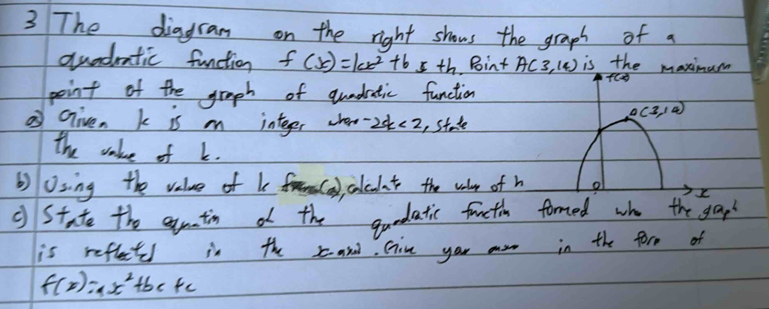 3 The diagram on the right shows the graph of a
quadratic function f(x)=kx² +6x +h. Point A(3,14) is the maximum
point of the graph of quadratic function
f(x)
A(3,14)
a) Given k is an integer where -2<k<2, state
the value of k.
b) Using the value of k from(a), calculate the value of h
O
x
c) State the equatin of the quadratic functin formed whe the graph
is reflected in the x-axis. Give your in the form of
f(x)=ax²+bc+c